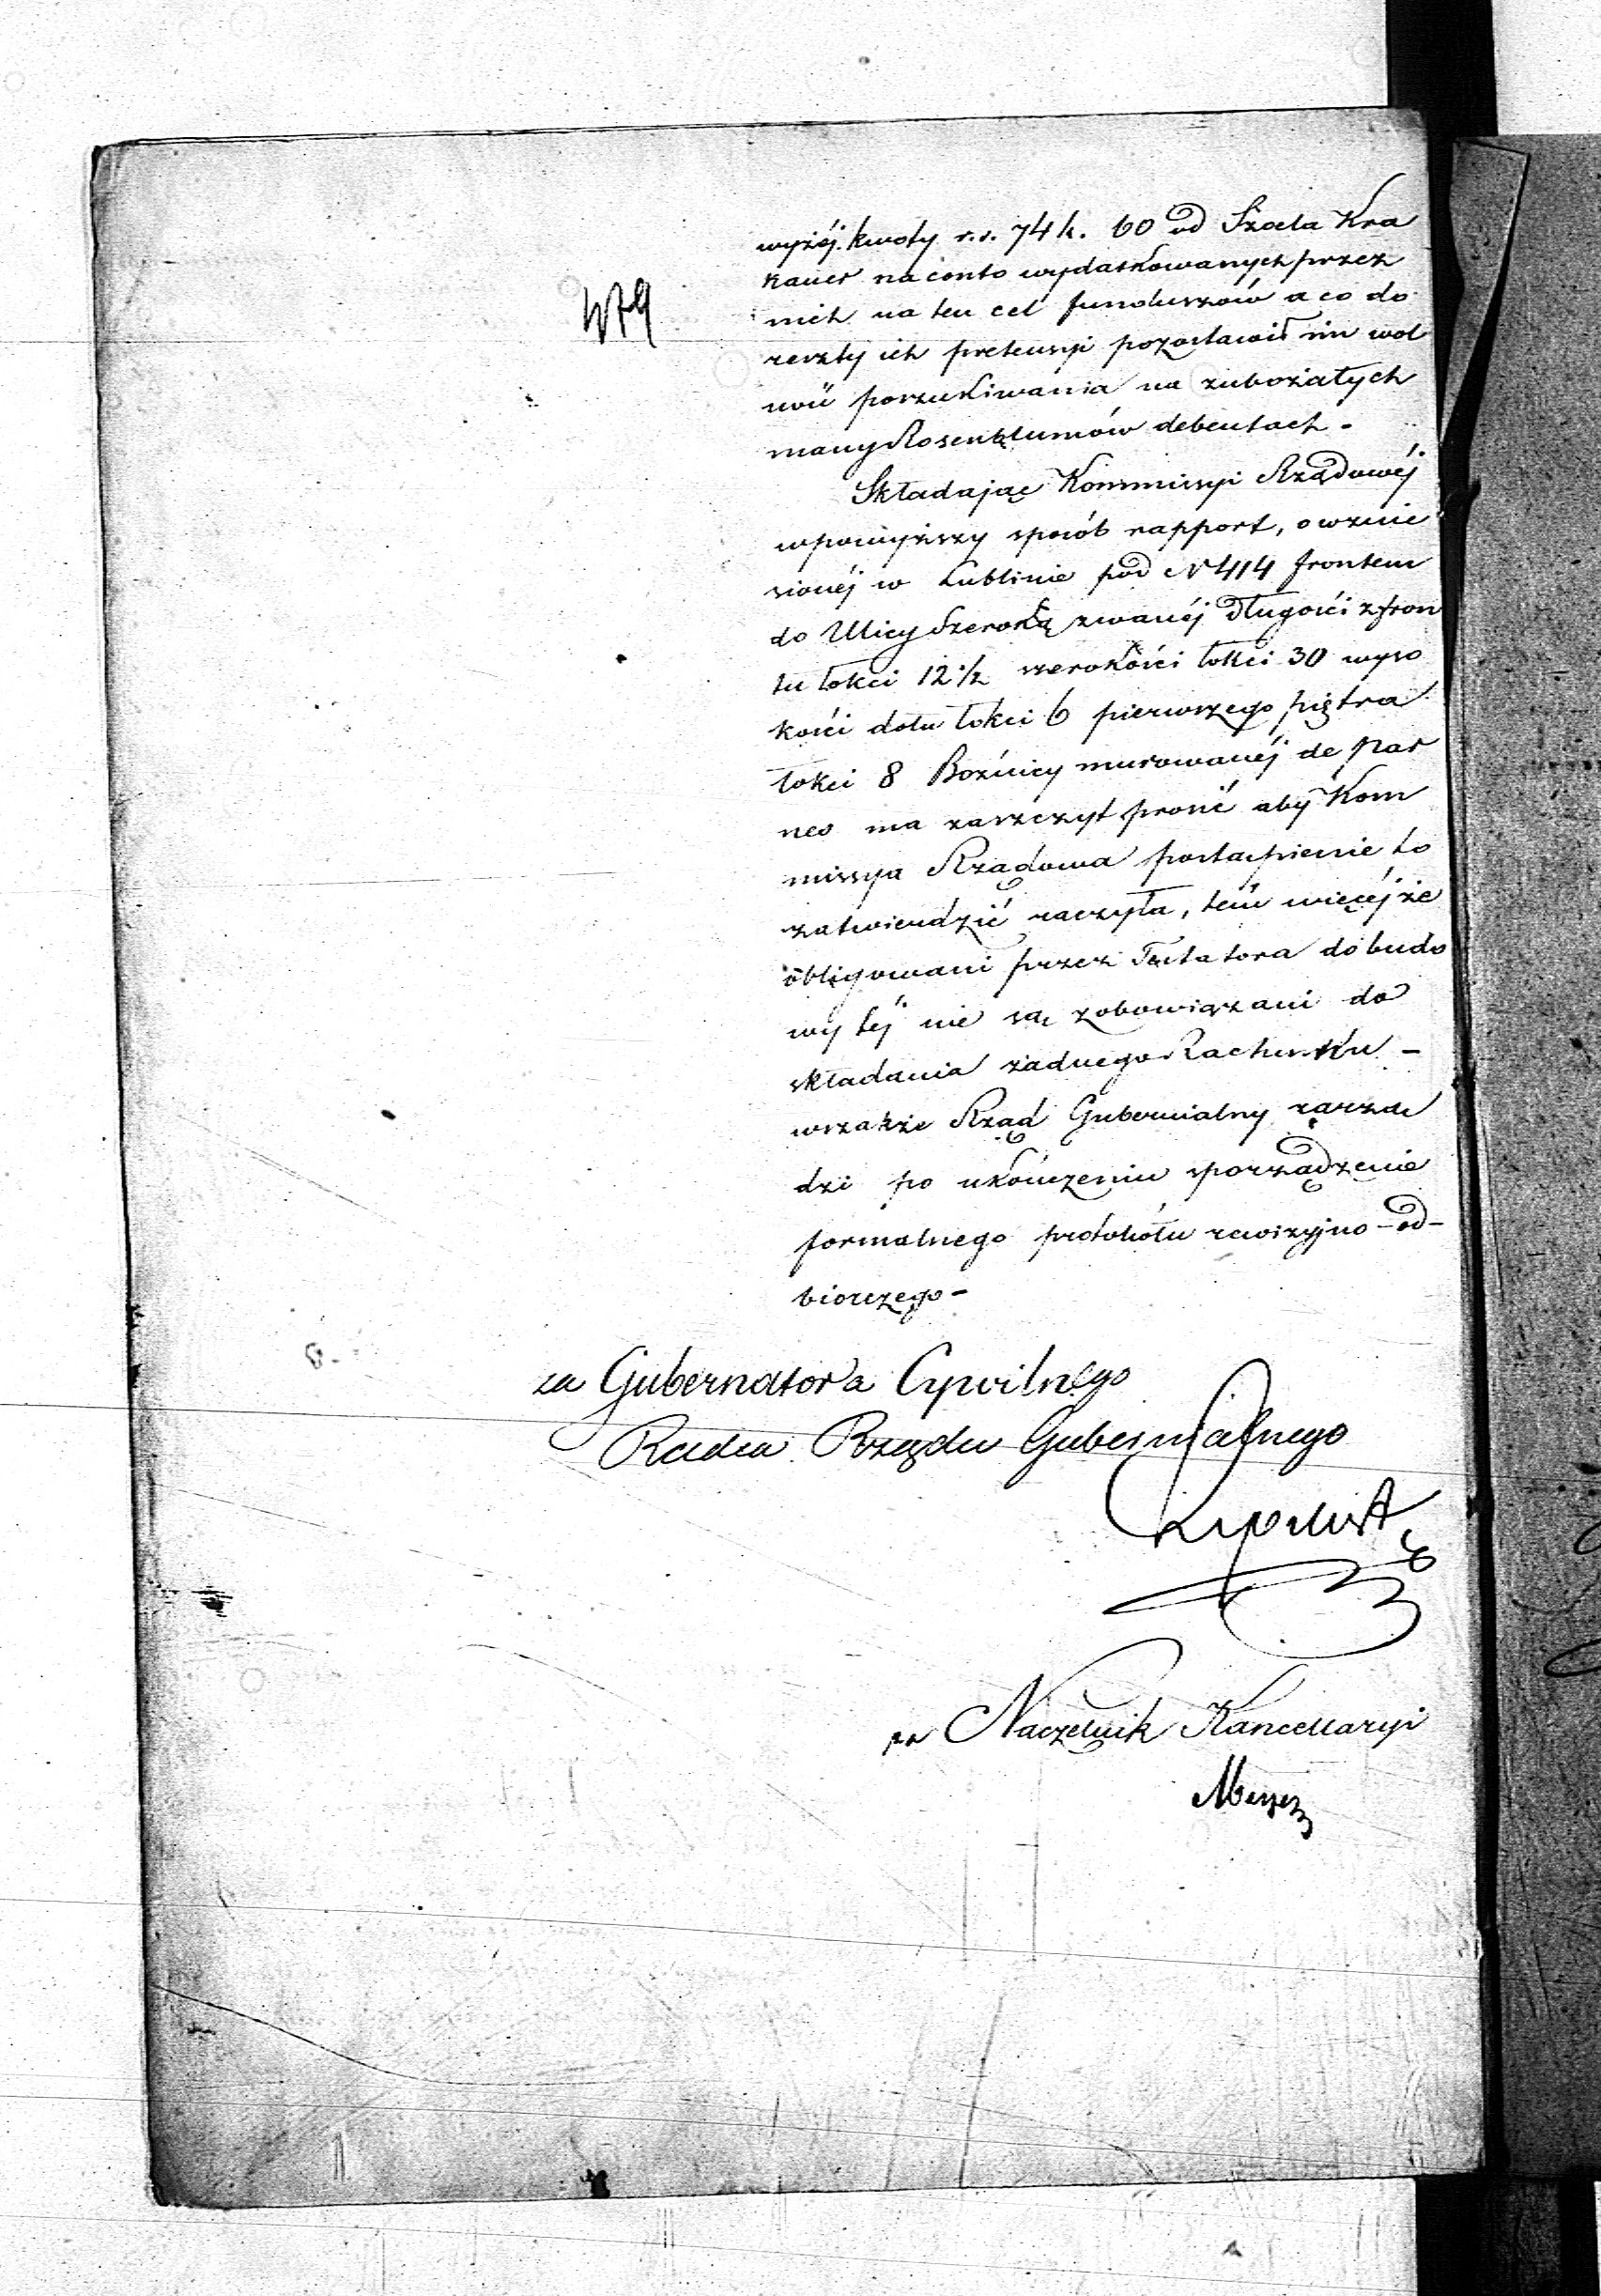 479
wyżéj kwoty r.s. 74 k. 60 od Szoela Kra
kauer na conto wydatkowanych przez
nich na ten cel funduszów a co do
reszty ich pretensyi pozostawił im wol
ność poszukiwania na zubożałych
massy Rosenblumów debentach -
Składając Kommissyi Rządowéj
w powyższy sposób rapport, o wznie
sionéj w Lublinie pod N 414 frontem
do Ulicy Szeroką zwanéj długości z fron
tu łokci 12 1/2 szerokości łokci 30 wyso
kości dołu łokci 6 pierwszego piętra
łokci 8 Bożnicy murowanéj de Par
neo ma zaszczyt prosić aby Kom
missya Rządowa postąpienie to
zatwierdzić raczyła, tém więcéj że
obligowani przez Testatora do budo
wy téj nie są zobowiązani do
składania żadnego Rachunku -
wszakże Rząd Gubernialny zarzą
dzi po ukończeniu sporządzenie
formalnego protokółu rewizyjno - od -
biorczego -
za Gubernatora Cywilnego
Radca Rządu Gubernialnego
Naczelnik Kancellaryi